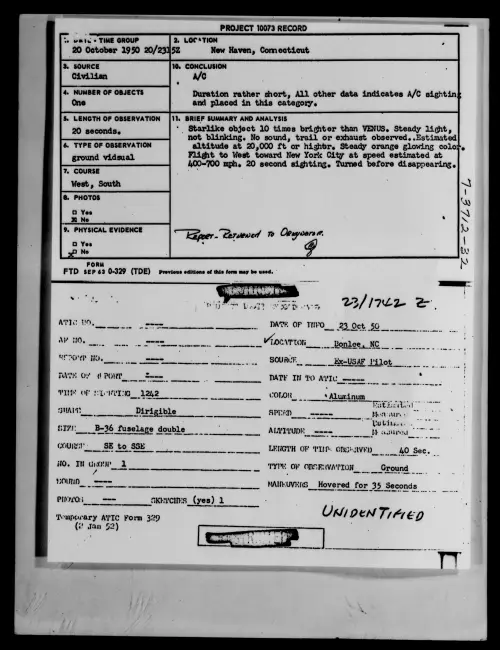 PROJECT 10073 RECORD
1. DATE - TIME GROUP
20 October 1950 20/2315Z
2. LOCATION
New Haven, Connecticut
3. SOURCE
Civilian
10. CONCLUSION
A/C
Duration rather short, All other data indicates A/C sighting
and placed in this category.
4. NUMBER OF OBJECTS
One
5. LENGTH OF OBSERVATION
20 seconds.
11. BRIEF SUMMARY AND ANALYSIS
Starlike object 10 times brighter than VENUS. Steady light,
not blinking. No sound, trail or exhaust observed..Estimated
altitude at 20,000 ft or highbr. Steady orange glowing color.
Flight to West toward New York City at speed estimated at
400-700 mph. 20 second sighting. Turned before disappearing.
6. TYPE OF OBSERVATION
ground vidsual
7. COURSE
West, South
8. PHOTOS
□ Yes
☒ No
9. PHYSICAL EVIDENCE
□ Yes
☒ No
Report - Returned to Originator.
7-3712-32
FORM
FTD SEP 63 0-329 (TDE) Previous editions of this form may be used.
23/1742 Z.
ATIC NO. ----
DATE OF INFO 23 Oct 50
AF NO. ----
✓LOCATION Bonlee, NC
REPORT NO. ----
SOURCE Ex-USAF Pilot
DATE OF REPORT ----
DATE IN TO ATIC -----
TIME OF SIGHTING 1242
COLOR Aluminum
SHAPE Dirigible
SPEED -----
Estimated
Measured
SIZE B-36 fuselage double
ALTITUDE ----
Estimated
Measured
COURSE SE to SSE
LENGTH OF TIME OBSERVED 40 Sec.
NO. IN GROUP 1
TYPE OF OBSERVATION Ground
SOUND ----
MANEUVERS Hovered for 35 Seconds
PHOTOS ---
SKETCHES (yes) 1
UNIDENTIFIED
Temporary ATIC Form 329
(2 Jan 52)